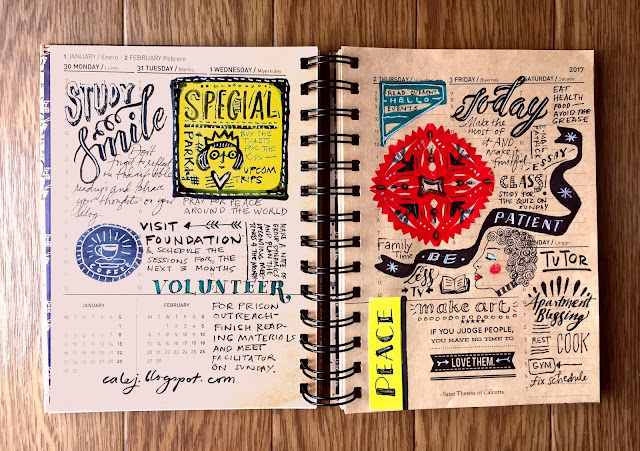 1 JANUARY / Enero - 2 FEBRUARY Pebrero
30 MONDAY / Lunes
31 TUESDAY / Martes
1 WEDNESDAY / Miyerkules
STUDY
Smile
Don't
forget to reflect
on the
readings and
your thoughts on your
blog
SPECIAL
PARK
BUY THE
TICKETS
FOR THE
KIDS
UPCOM
TRIPS
PRAY FOR PEACE
AROUND THE WORLD
COFFEE
VISIT
FOUNDATION
& SCHEDULE THE
SESSIONS FOR THE
NEXT 3 MONTHS
MAKE A NOTE OF
GROUP DYNAMICS
AND PLAN THE
UPCOMING
VOLUNTEER
JANUARY
FEBRUARY
FOR PRISON
OUTREACH-
FINISH READ-
ING MATERIALS
AND MEET
FACILITATOR
ON SUNDAY.
calej.blogspot.com
2 THURSDAY /
3 FRIDAY / Biyernes
SATURDAY / Sabado
2017
READ CURRENT
HELLO
EVENTS
Today
Make the
most of
it AND
make it
fruitful.
EAT
HEALTH
FOOD
AVOID THE
GREASE
ESSAY
CLASS
STUDY FOR
THE QUIZ ON
SUNDAY
BE
PATIENT
Family
Time
Less
TV
NDAY / Linggo
TUTOR
make art.
IF YOU JUDGE PEOPLE,
YOU HAVE NO TIME TO
LOVE THEM.
-Saint Theresa of Calcutta
PEACE
Apartment
Blogging
REST
COOK
GYM
fix schedule